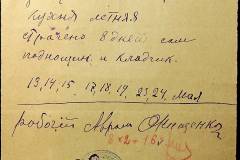 Кухня летняя
страчено 8 дней сам
подношик и кладчик.
13, 14, 15, 17, 18, 19, 23, 24, мая
рабочей Аврам Онищенко
8 × 2 = 16